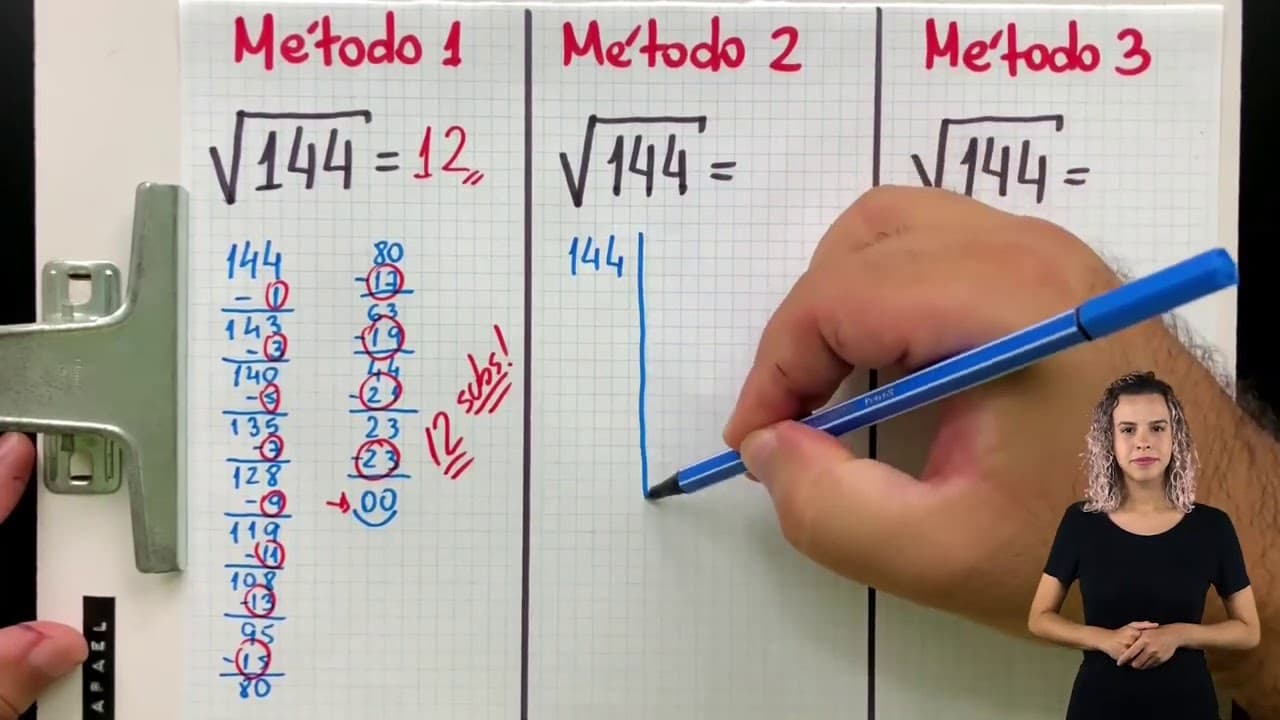 Método 1
√144 = 12
144
- 1
143
- 3
140
- 5
135
- 7
128
- 9
119
- 11
108
- 13
95
- 15
80
80
- 17
63
- 19
44
- 21
23
- 23
00
12 subs!
Método 2
√144 =
144
Método 3
√144 =
APAEL